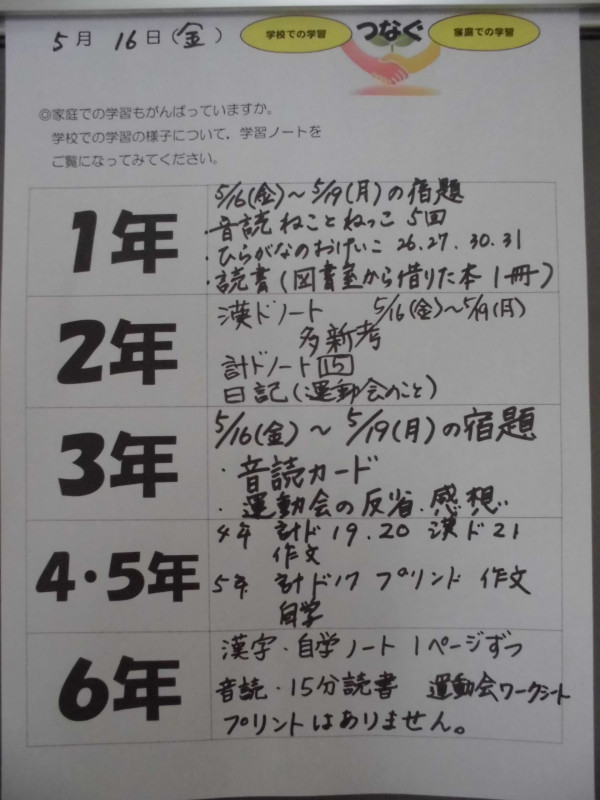 5月 16日(金)
学校での学習 つなぐ 家庭での学習
◎家庭での学習もがんばっていますか。
学校での学習の様子について，学習ノートを
ご覧になってみてください。
1年
5/16(金)～5/19(月)の宿題
・音読 ねことねっこ 5回
・ひらがなのおけいこ 26.27.30.31
・読書(図書室から借りた本1冊)
2年
漢ドノート 5/16(金)～5/19(月)
多新考
計ドノート 15
日記(運動会のこと)
3年
5/16(金)～5/19(月)の宿題
・音読カード
・運動会の反省.感想
4・5年
4年 計ド 19.20 漢ド21
作文
5年 計ド17 プリント 作文
自学
6年
漢字・自学ノート 1ページずつ
音読・15分読書 運動会ワークシート
プリントはありません。